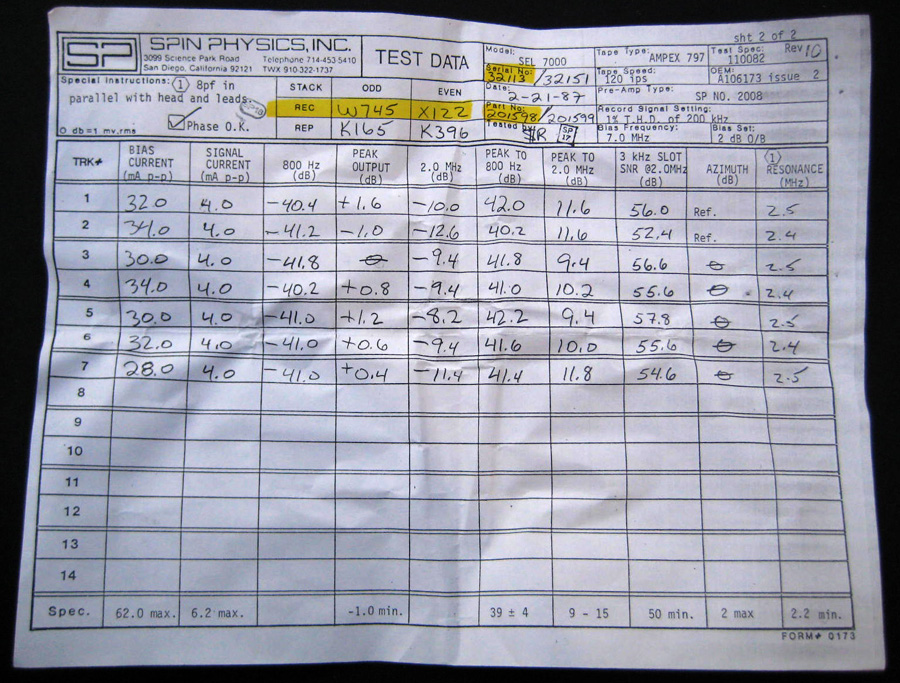 sht 2 of 2
SP SPIN PHYSICS, INC.
3099 Science Park Road Telephone 714-453 5410
San Diego, California 92121 TWX 910-322-1737
TEST DATA
Model: SEL 7000
Serial No: 32113/32151
Date: 2-21-87
Part No: 201598/201599
Tested by: SP 17
Tape Type: AMPEX 797
Tape Speed: 120 ips
Pre-Amp Type: SP NO. 2008
Record Signal Setting: 1% T.H.D. of 200 kHz
Bias Frequency: 7.0 MHz
Test Spec: 110082 Rev 10
OEM: A106173 issue 2
Bias Set: 2 dB O/B
Special Instructions: 1 8pf in
parallel with head and leads.
Phase O.K.
O db=1 mv.rms
STACK ODD EVEN
REC W745 X122
REP K165 K396
TRK# BIAS CURRENT (mA p-p) SIGNAL CURRENT (mA p-p) 800 Hz (dB) PEAK OUTPUT (dB) 2.0 MHz (dB) PEAK TO 800 Hz (dB) PEAK TO 2.0 MHz (dB) 3 kHz SLOT SNR @2.0MHz (dB) AZIMUTH (dB) 1 RESONANCE (MHz)
1 32.0 4.0 -40.4 +1.6 -10.0 42.0 11.6 56.0 Ref. 2.5
2 34.0 4.0 -41.2 -1.0 -12.6 40.2 11.6 52.4 Ref. 2.4
3 30.0 4.0 -41.8 ⊖ -9.4 41.8 9.4 56.6 ⊖ 2.5
4 34.0 4.0 -40.2 +0.8 -9.4 41.0 10.2 55.6 ⊖ 2.4
5 30.0 4.0 -41.0 +1.2 -8.2 42.2 9.4 57.8 ⊖ 2.5
6 32.0 4.0 -41.0 +0.6 -9.4 41.6 10.0 55.6 ⊖ 2.4
7 28.0 4.0 -41.0 +0.4 -11.4 41.4 11.8 54.6 ⊖ 2.5
8
9
10
11
12
13
14
Spec. 62.0 max. 6.2 max. -1.0 min. 39 ± 4 9 - 15 50 min. 2 max 2.2 min.
FORM# 0173